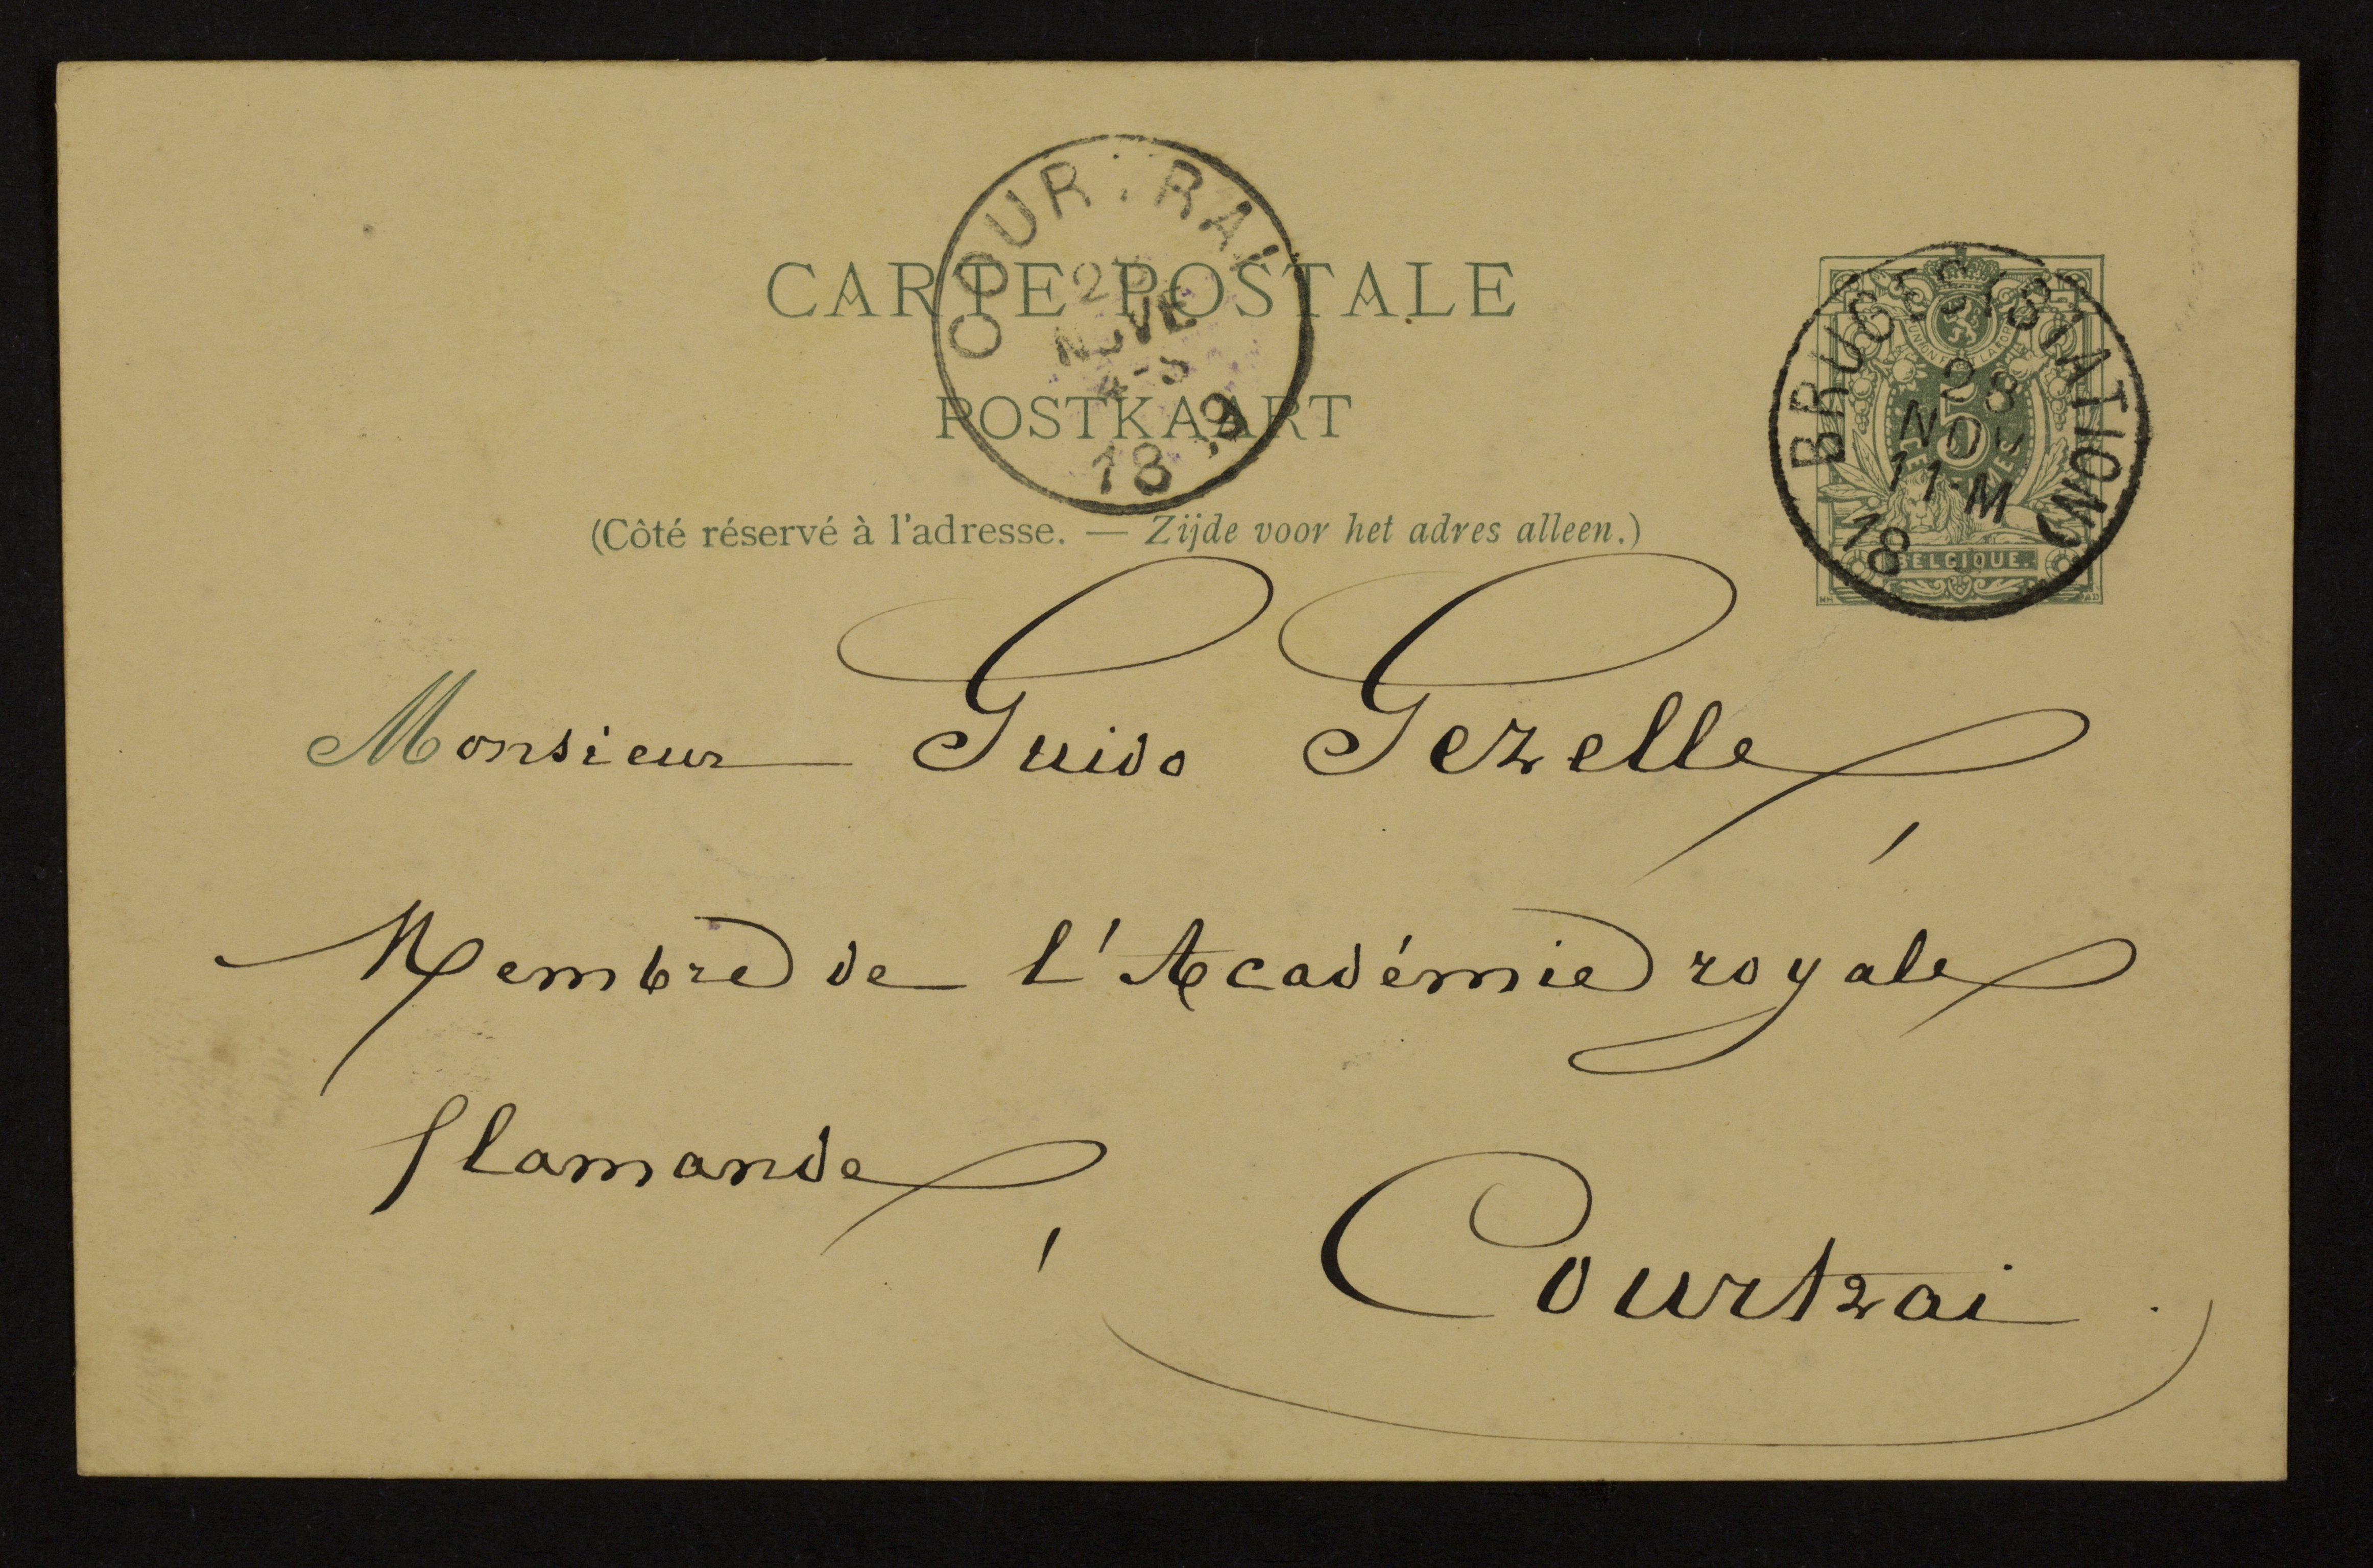 CARTE POSTALE
POSTKAART
(Côté réservé à l'adresse. — Zijde voor het adres alleen.)
BRUGES (STATION)
28
NOV
11-M
18
5
BELGIQUE.
Monsieur Guido Gezelle,
Membre de l'Académie royale
flamande,
Courtrai.